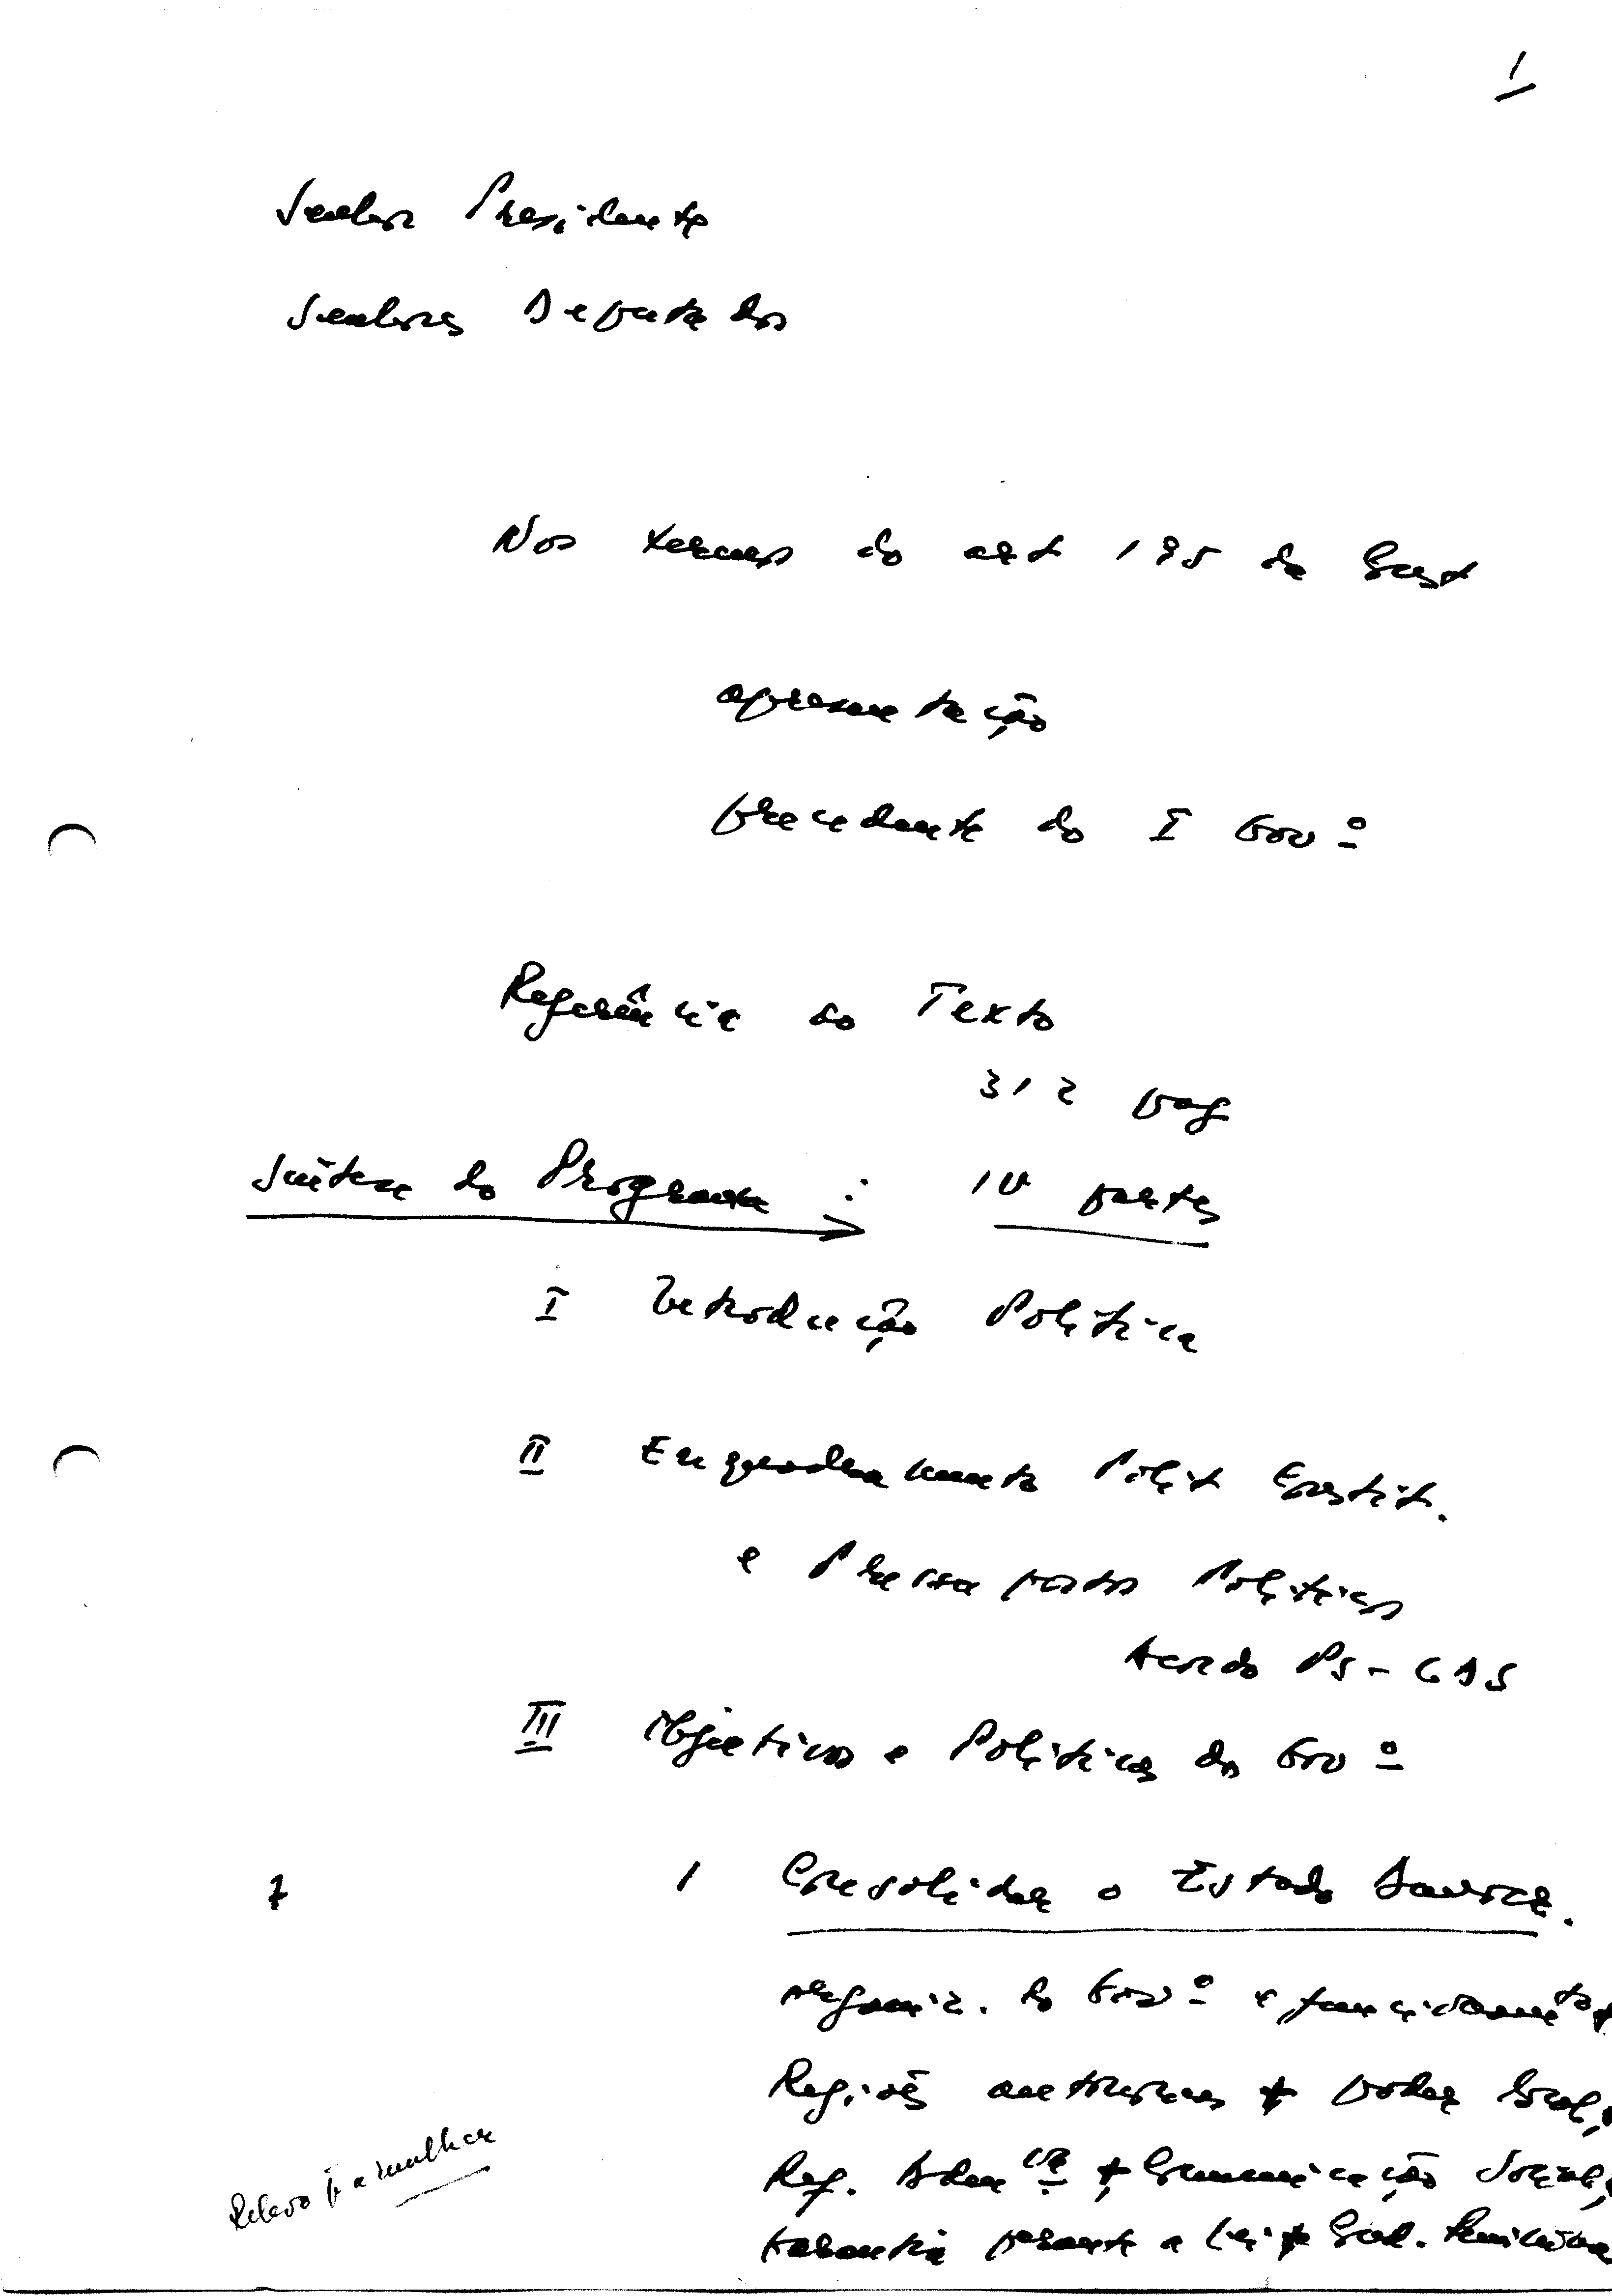 1
Senhor Presidente
Senhores Deputados
Nos termos do art 195 da Const
apresentação
precedente do I Gov º
Referência ao Texto
312 pag
Síntese do Programa : IV partes
I Introdução Política
II Enquadramento Polít Constit.
e Pressupostos Políticos
Acordo PS - CDS
III Objetivos e Políticas do Gov º
7 1 Consolidar o Estado Democr.
organiz. do Gov º e funcionamento
Regiões autónomas + poder local,
Ref. Adm va + Comunicação Social,
Relevo p a mulher
Garantia perante a lei + Cod.